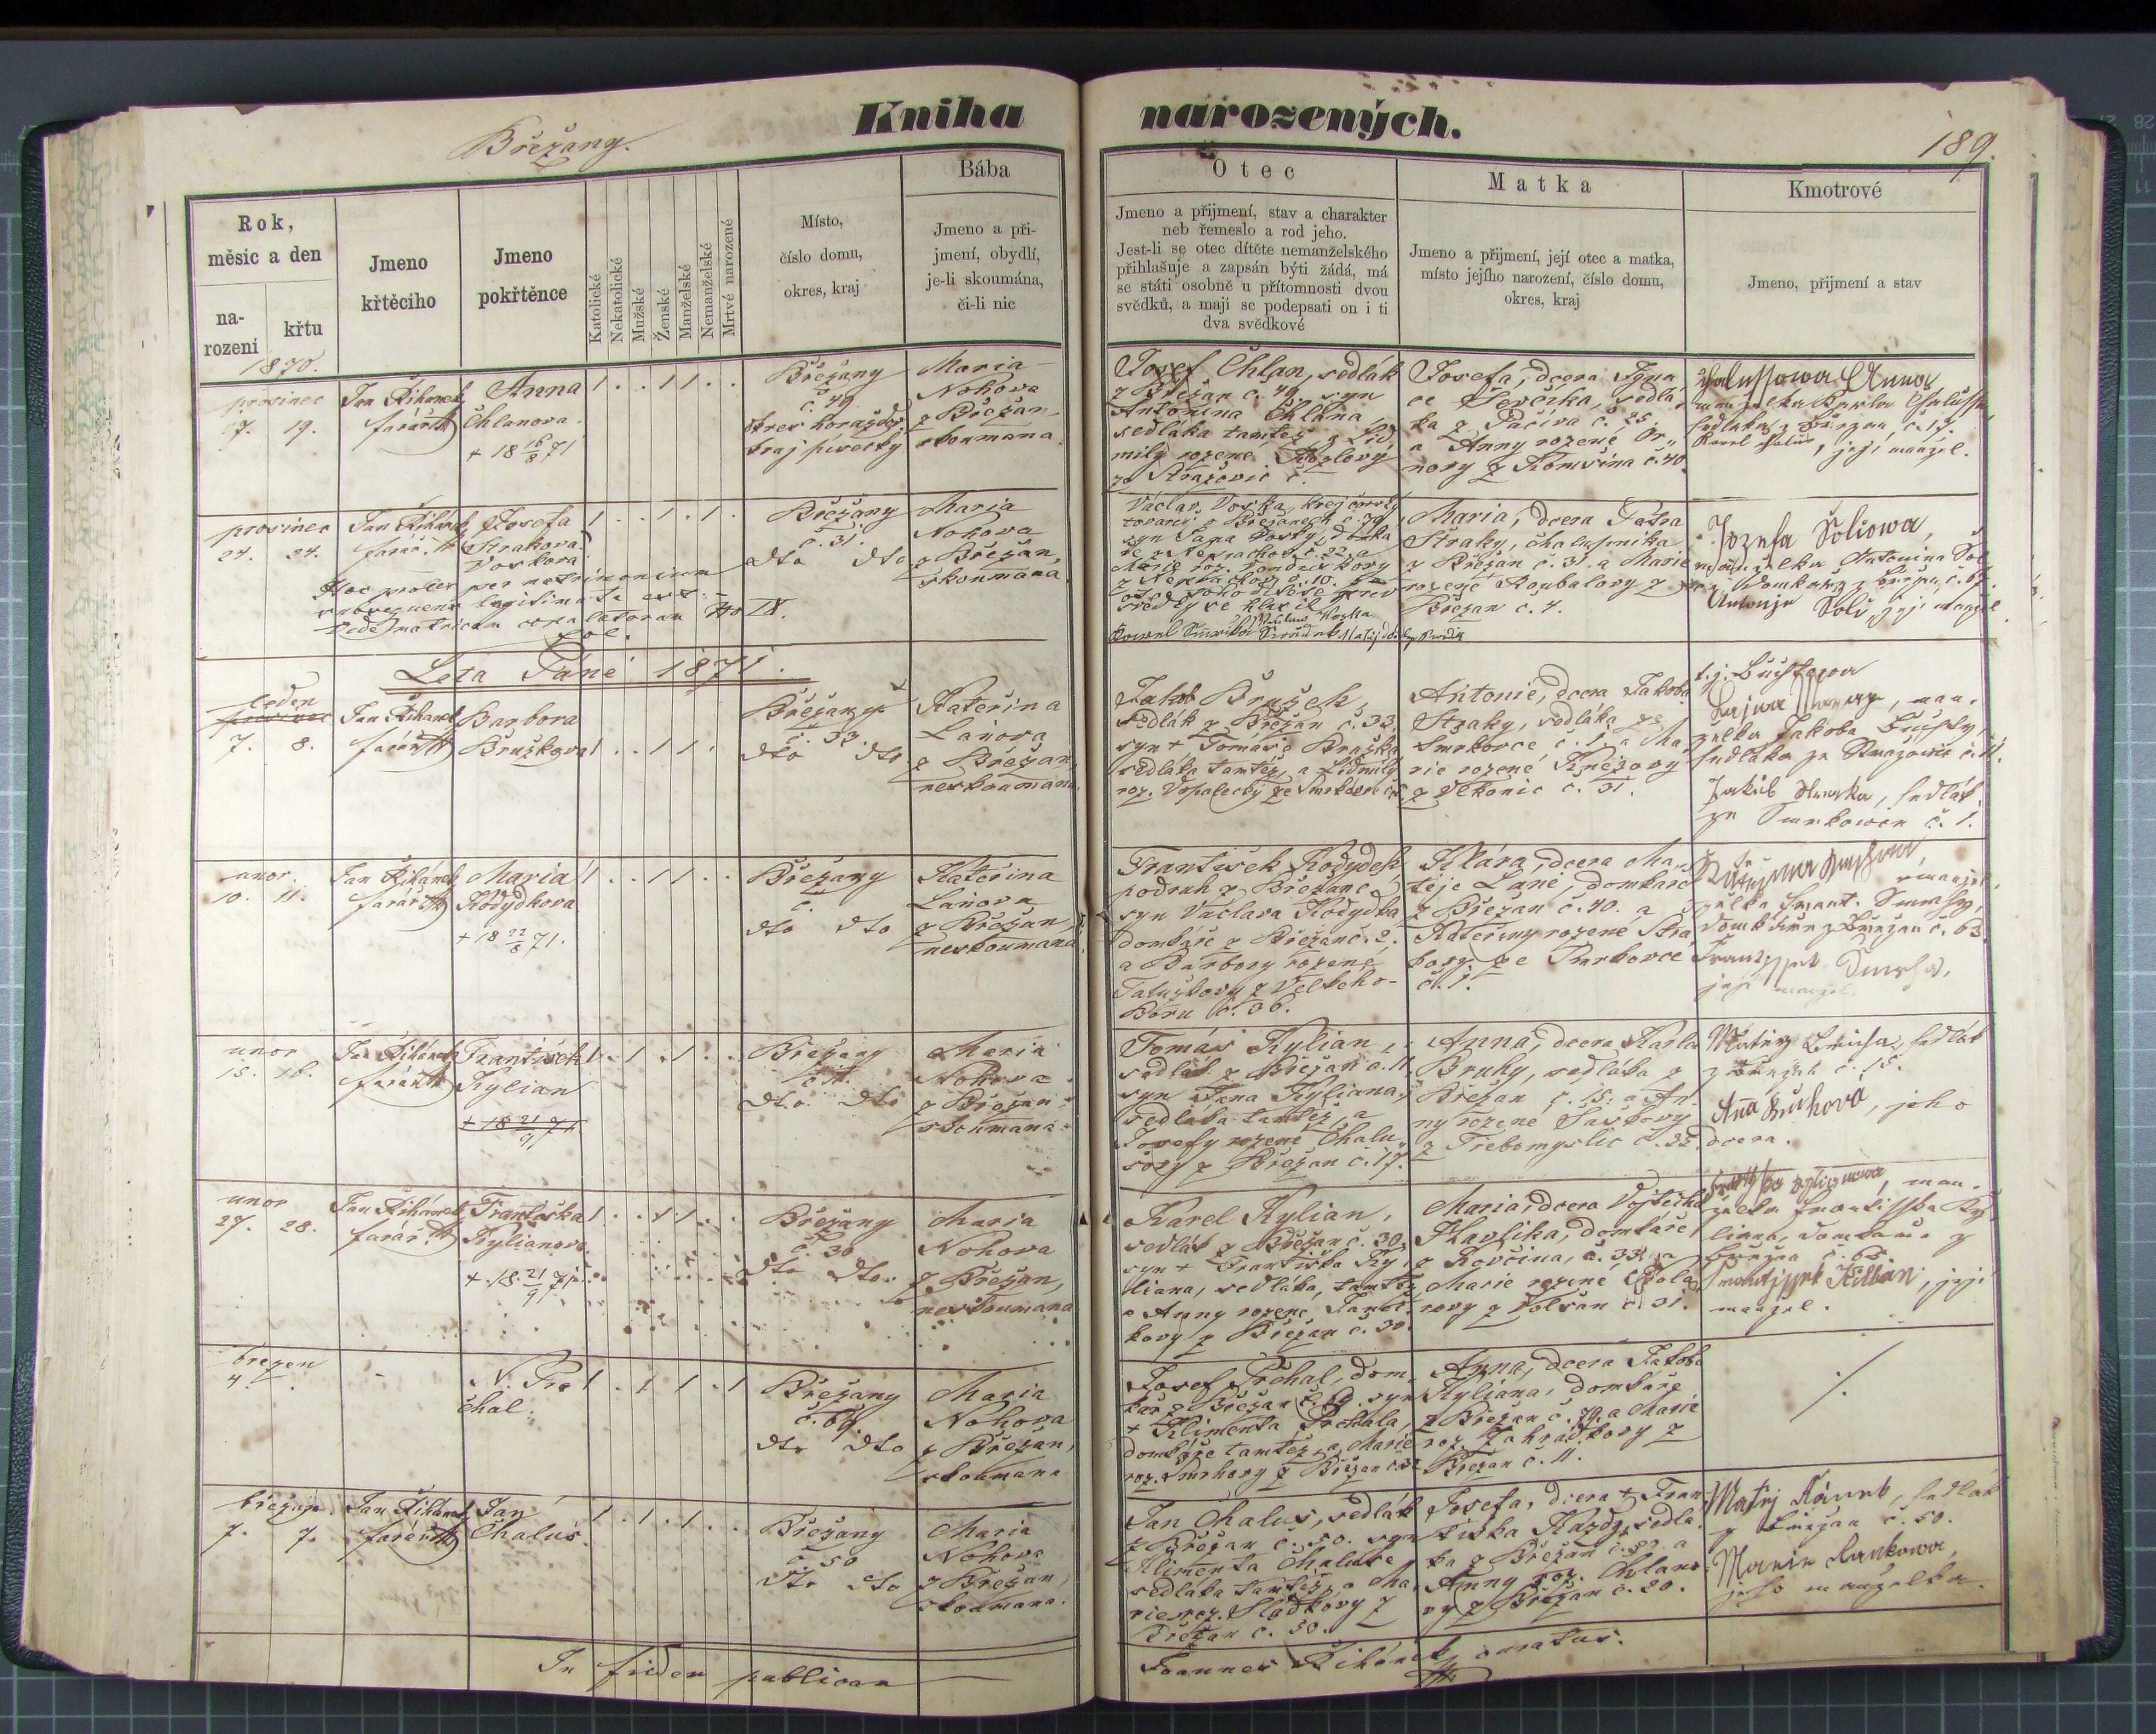 Kniha narozených.
Břežany.
189.
Rok,
měsíc a den
na-
rození
křtu
Jmeno
křtěciho
Jmeno
pokřtěnce
Katolické
Nekatolické
Mužské
Ženské
Manželské
Nemanželské
Mrtvé narozené
Místo,
číslo domu,
okres, kraj
Bába
Jmeno a při-
jmení, obydlí,
je-li skoumána,
či-li nic
Otec
Jmeno a přijmení, stav a charakter
neb řemeslo a rod jeho.
Jest-li se otec dítěte nemanželského
přihlašuje a zapsán býti žádá, má
se státi osobně u přítomnosti dvou
svědků, a mají se podepsati on i ti
dva svědkové
Matka
Jmeno a přijmení, její otec a matka,
místo jejího narození, číslo domu,
okres, kraj
Kmotrové
Jmeno, přijmení a stav
1870.
prosinec
17. 19.
Jan Řihánek
farář
Anna
Chlanova
+ 18 16/8 71
1 . . 1 1 . .
Břežany
č. 49
okres horažď.
kraj písecký
Maria
Nohova
z Břežan
skoumana.
Josef Chlan, sedlák
z Břežan č. 49, syn
Antonína Chlana,
sedláka tamtéž, a Lid
mily rozené Kozlovy
ze Stražovic č.
Josefa, dcera Igna
ce Ševčíka, sedla
ka z Pačiva č. 25.
a Anny rozené Or
novy z Komušína č. 40.
Chalussowa Anna
manzelka Karla Chalussa
sedlaka z Břežan č. 17.
Karel Chalus, její manžel.
prosinec
24. 24.
Jan Řihánek
farář.
Josefa
Strakova.
Voskova
1 . . 1 . 1 .
Břežany
č. 31.
dto dto
Maria
Nohova
z Břežan,
skoumana
Hoc proles per matrimonium
subsequens legitimata est.
Vide matricam copulatorum
Václav Voska, krejčovský
tovareš z Břežanech č. 39,
syn Jana Vosky, domka
ře z Nepračhov č. 22, a
Marie roz.
z Nepračhov č. 10. se
za otce tohoto dítěte před
svědky se hlásil
Maria, dcera Petra
Straky, chalupníka
z Břežan č. 31. a Marie
rozené Koubalovy z
Břežan č. 4.
Jozefa Šoliowa,
manželka Antonína Šol
Domkaře z Břežan č. 67.
Antonín Šolc, její manžel
Leta Páně 1871.
leden
7. 8.
Jan Řihánek
farář
Barbora
Bruzkova
1 . . 1 1 .
Břežany
č. 33
dto dto
Kateřina
Lanova
z Břežan
neskoumana.
Jakob Bružek,
sedlák z Břežan č. 33
syn + Tomáše Bružka
sedláka tamtéž, a Lidmily
roz. Vopalecky ze Smrkovce č.
Antonie, dcera Jakoba
Straky, sedláka ze
Smrkovce č. 1, a Ma
rie rozené Knězovy
z Vlkonic č. 31.
man.
zelka Jakoba
sedláka ze Stražowic č. 11.
Jakub Straka, sedlák
ze Smrkowce č. 1.
unor.
10. 11.
Jan Řihánek
farář
Maria
Kožydkova
+ 18 22/8 71.
1 . . 1 1 . .
Břežany
č.
dto dto
Kateřina
Lanova
z Břežan,
neskoumana
František Kožydek
podruh z Břežan,
syn Václava Kožydka
domkáře z Břežan č. 2.
a Barbory rozené
Tatuškovy z Velkého-
Boru č. 36.
Klára, dcera Ma
těje Lane, domkáře
z Břežan č. 40. a
Kateřiny rozené Stra
kovy ze Smrkovce
č. 1.
manžel
zelka Frant. Smrhy,
domkáře z Břežan č. 63
Frantissek Smrha,
její manžel.
unor
15. 16.
Jan Řihánek
farář
František
Kylian
+ 18 21/9 71
1 . 1 . 1 . .
Břežany
č. 11.
dto dto
Maria
Nohova
z Břežan
skoumana
Tomáš Kylian,
sedlák z Břežan č. 11
syn Jana Kyliana,
sedláka tamtéž, a
Josefy rozené Chalu
šovy z Břežan č. 17.
Anna, dcera Karla
Bruhy, sedláka z
Břežan č. 15. a An
ny rozené Šaškovy
z Třebomyslic č. 22.
Matěj Brucha, sedlák
z Břežan č. 15.
Aña Bruhová, jeho
dcera.
unor
27. 28.
Jan Řihánek
farář.
Františka
Kylianova
+ 18 21/9 71
1 . . 1 1 . .
Břežany
č. 30
dto dto
Maria
Nohova
z Břežan,
neskoumana
Karel Kylian,
sedlák z Břežan č. 30
syn + Františka Ky
liana, sedláka, tamtéž
a Anny rozené Janeč
kovy z Břežan č. 30.
Maria, dcera Vojtěcha
Kavlíka, domkáře
z Kovčína, č. 33, a
Marie rozené
rovy z Volšan č. 31.
man.
želka Frantisska Ky
liana, domkaře z
Břežan č. 65.
Frantissek Killian, její
manžel.
brezen
4.
N. Pro
chal.
1 . 1 1 . 1
Břežany
č. 69.
dto dto
Maria
Nohova
z Břežan,
skoumana
Josef Prchal, dom
kař z Břežan č. 69. syn
+ Klimenta Prchala,
domkáře tamtéž, a Marie
roz. Smrhovy z Břežan č. 32
Anna, dcera Jakoba
Kyliana, domkáře
z Břežan č. 79, a Marie
roz. Zahradkovy z
Břežan č. 11.
březen
7. 7.
Jan Řihánek
farář
Jan
Chalus.
1 . 1 . 1 . .
Břežany
č. 50
dto dto
Maria
Nohova
z Břežan,
skoumana.
Jan Chalus, sedlák
z Břežan č. 50. syn
Klimenta Chaluse,
sedláka tamtéž, a Ma
rie roz. Sladkovy z
Břežan č. 50.
Josefa, dcera + Fran
tiška Kazdy, sedla
ka z Břežan č. 22. a
Anny roz. Chlano
vy z Břežan č. 20.
Matěj Ránek, sedlák
z Břežan č. 50.
Marie Rankowa,
jeho manželka.
In fidem publicam
Joannes Řihánek, curatus.